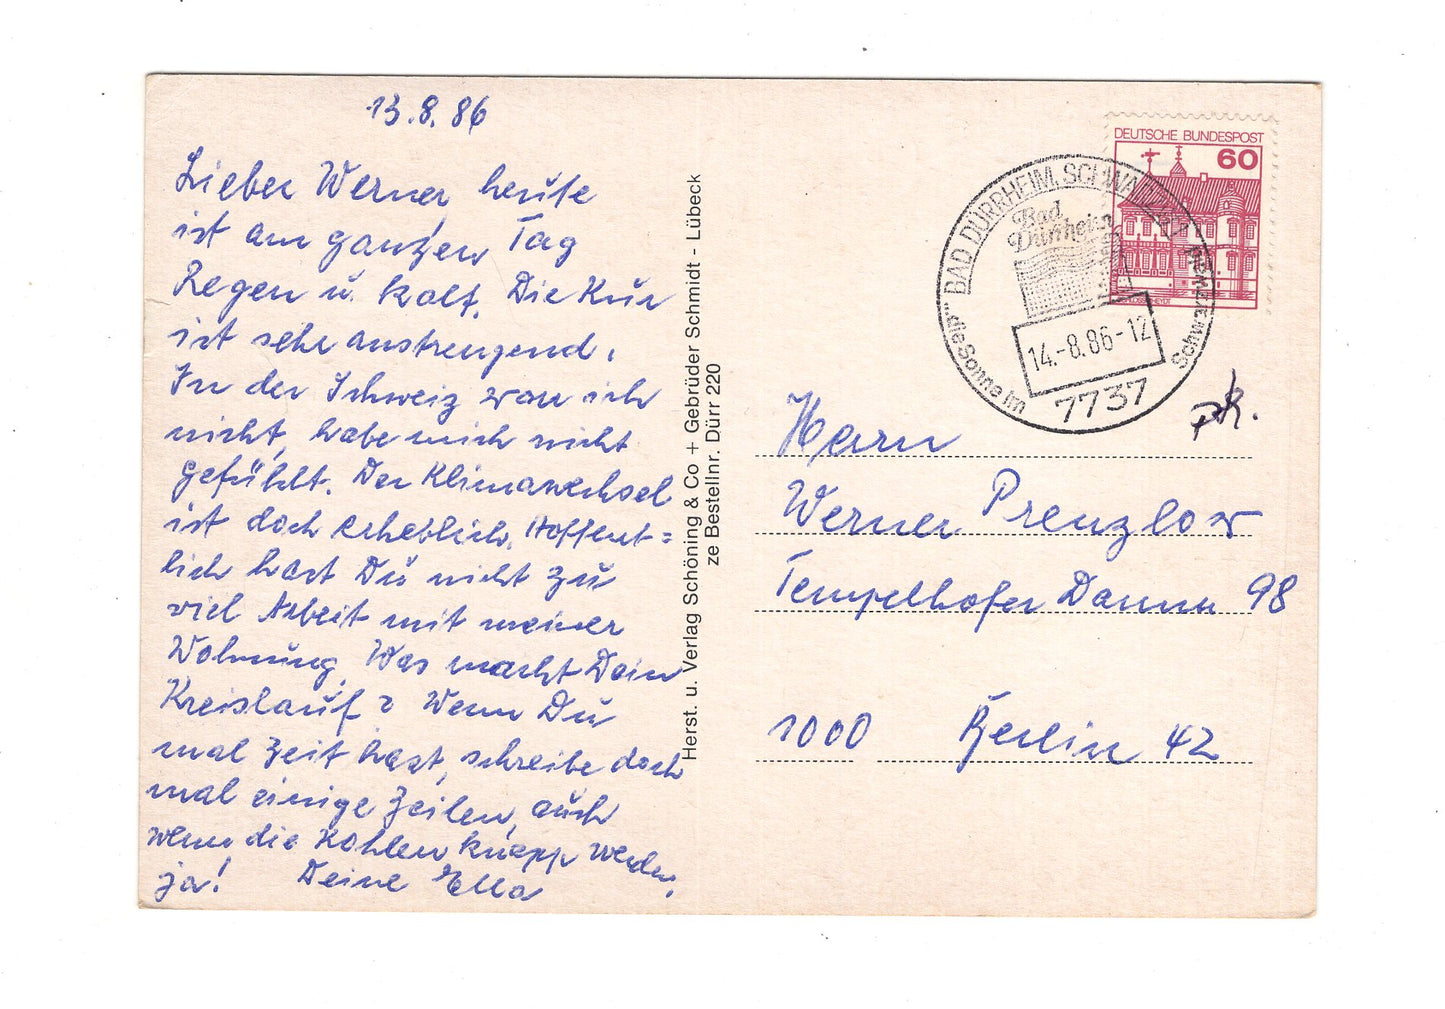 13.8.86
Lieber Werner, heute
ist am ganzen Tag
Regen u. kalt. Die Kur
ist sehr anstrengend.
In der Schweiz war ich
nicht, habe mich nicht
gefühlt. Der Klimawechsel
ist doch erheblich. Hoffent=
lich hast Du nicht zu
viel Arbeit mit meiner
Wohnung. Was macht Dein
Kreislauf? Wenn Du
mal Zeit hast, schreibe doch
mal einige Zeilen, auch
wenn die Kohlen knapp werden,
ja! Deine Ella
Herst. u. Verlag Schöning & Co + Gebrüder Schmidt - Lübeck
ze Bestellnr. Dürr 220
DEUTSCHE BUNDESPOST
60
BAD DÜRRHEIM, SCHWARZW
Bad
Dürrheim
14.-8.86-12
7737
die Sonne im
Schw
PK.
Herrn
Werner Prenzlow
Tempelhofer Damm 98
1000 Berlin 42